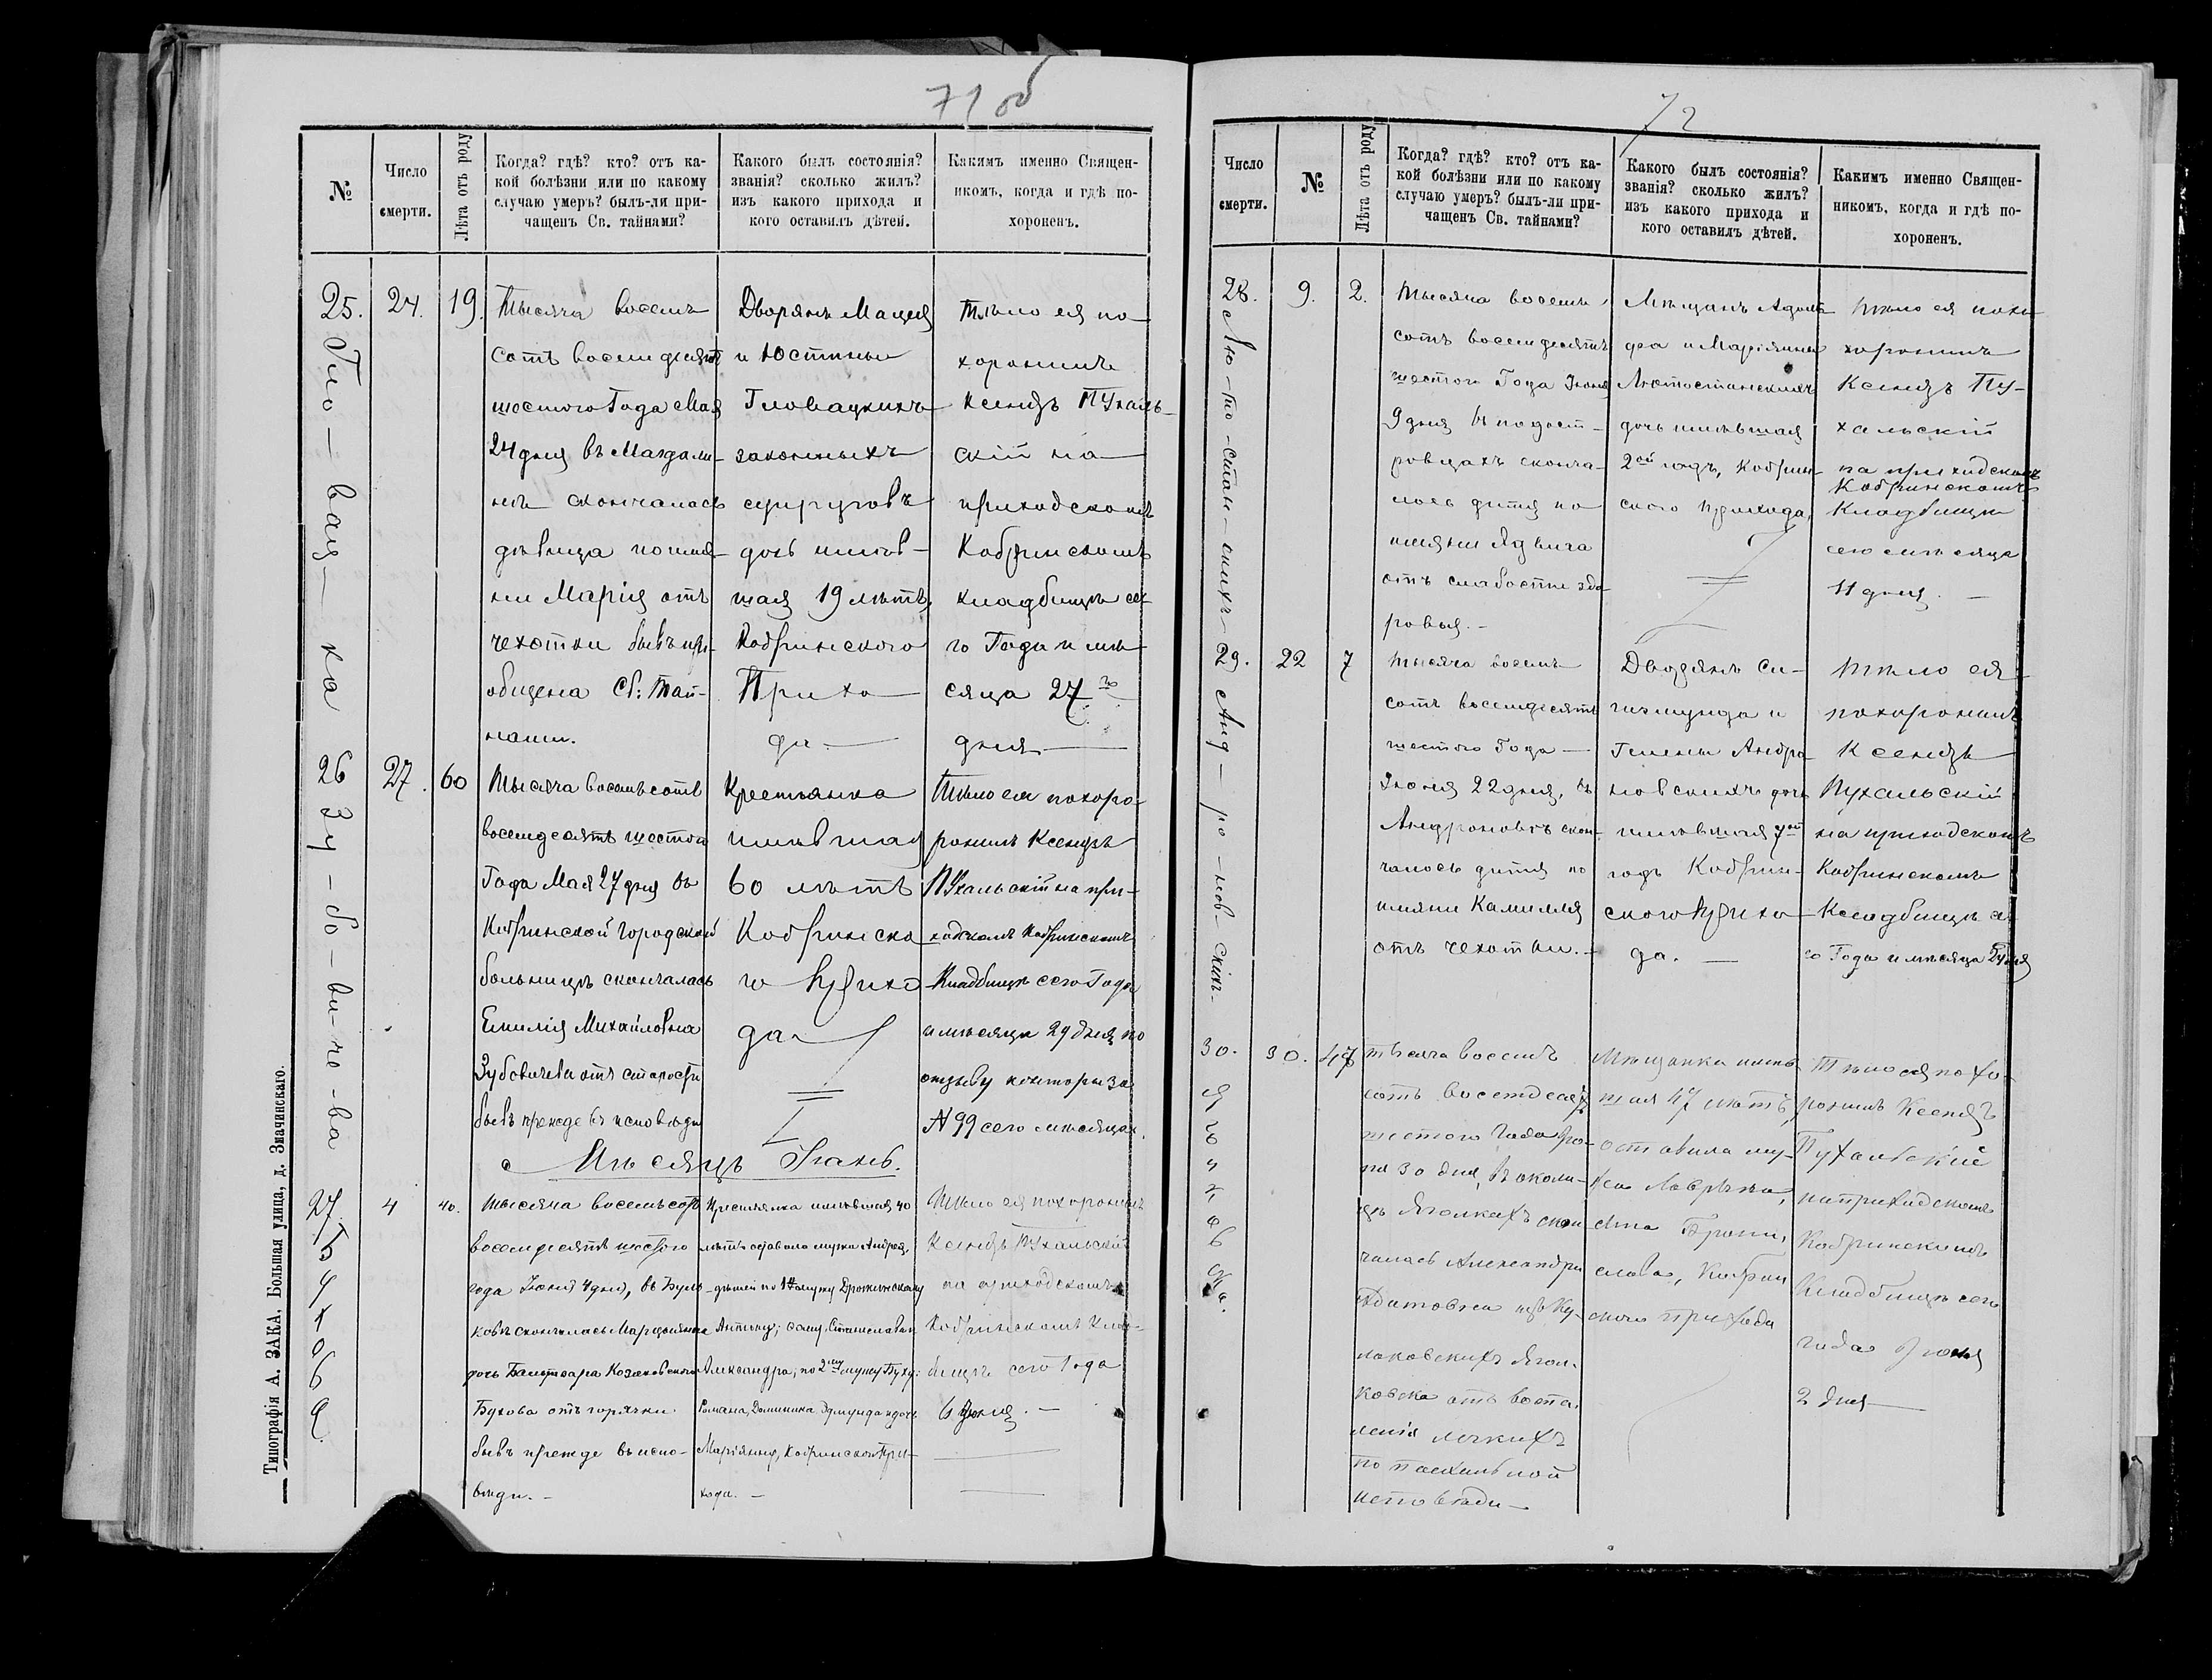 71 об
№
Число
смерти.
Лѣта отъ роду
Когда? гдѣ? кто? отъ ка-
кой болѣзни или по какому
случаю умеръ? былъ-ли при-
чащенъ Св. тайнами?
Какого былъ состоянія?
званія? сколько жилъ?
изъ какого прихода и
кого оставилъ дѣтей.
Какимъ именно Священ-
никомъ, когда и гдѣ по-
хороненъ.
25.
24.
19.
Гло-вац-ка
Тысяча восемь
сотъ восемдесятъ
шостого Года Мая
24 дня въ Магдали-
нѣ скончалась
дѣвица по имя-
ни Марія отъ
чехотки бывъ прі-
общена Св: Тай-
нами.
Дворянъ Мацея
и Юстины
Гловацкихъ
законныхъ
супруговъ
дочь имѣв-
шая 19 лѣтъ,
Кобринского
Прихо
да
Тѣло ея по-
хоронилъ
Ксендзъ Пухаль-
скій на
приходскомъ
Кобринскомъ
кладбищѣ се-
го Года и мѣ-
сяца 27го
дня
26
27.
60
Зу-бо-ви-че-ва
Тысяча восемьсотъ
восемдесятъ шестого
Года Мая 27 дня въ
Кобринской Городской
больницѣ скончалась
Емилія Михайловна
Зубовичева отъ старости
бывъ прежде въ исповѣди
Крестьянка
имѣвшая
60 лѣтъ
Кобринска
го Прихо
да
Тѣло ея похоро-
ронилъ Ксендзъ
Пухальскій на при-
ходскомъ Кобринскомъ
Кладбищѣ сего Года
и мѣсяца 29 дня по
отзыву конторы за
N 99 сего мѣсяца.
Мѣсяцъ Іюнь.
27.
4
40.
Бухова.
Тысяча восемьсотъ
восемдесятъ шестого
года Іюня 4 дня, въ Бухо-
ковѣ скончалась Марціянна
дочь Бальтазара Козаковского
Бухова отъ горячки
бывъ прежде въ испо-
вѣди.-
Крестьянка имѣвшая 40
лѣтъ оставила мужа Андрея,
дѣтей по 1 мужу Дрожинскому
Антону; сыну: Станислава и
Александра; по 2му мужу Буху:
Романа, Доминика Эдмунда и дочь
Маріянну, Кобринского При-
хода.-
Тѣло ея похоронилъ
Ксендзъ Пухальскій
на приходскомъ
Кобринскомъ Клад-
бищѣ сего Года
6 Іюня.-
Типографія А. ЗАКА, Большая улица, д. Значинскаго.
72
Число
смерти.
№
Лѣта отъ роду
Когда? гдѣ? кто? отъ ка-
кой болѣзни или по какому
случаю умеръ? былъ-ли при-
чащенъ Св. тайнами?
Какого былъ состоянія?
званія? сколько жилъ?
изъ какого прихода и
кого оставилъ дѣтей.
Какимъ именно Священ-
никомъ, когда и гдѣ по-
хороненъ.
28.
9.
2.
Лю-то-стан-скихъ
Тысяча восемь
сотъ восемдесятъ
шестого Года Іюня
9 дня въ
сконча-
лось дитя по
имяни Ядвига
отъ слабости здо-
ровья.-
Мѣщанъ Адоль-
фа и Маріянны
Лютостанскихъ
дочь имѣвшая
2ой годъ, Кобрин-
ского прихода,
Тѣло ея похо-
хоронилъ
Ксендзъ Пу-
хальскій
на приходскомъ
Кобринскомъ
Кладбищѣ
сего мѣсяца
11 дня.-
29.
22
7
Анд-ро-нов-скихъ
Тысяча восемь
сотъ восемдесятъ
шестого Года
Іюня 22 дня, въ
Андроновѣ скон-
чалось дитя по
имяни Камилля
отъ чехотки.-
Дворянъ Си-
гизмунда и
Гелены Андро
новскихъ дочь
имѣвшая 7ой
годъ Кобрин-
ского прихо
да.-
Тѣло ея
похоронилъ
Ксендзъ
Пухальскій
на приходскомъ
Кобринскомъ
Кладбищѣ се-
го Года и мѣсяца 24 дня
30.
30.
47
Тысяча восемъ
сотъ восемдесятъ
шестого Года Iю-
ня 30 дня, въ околи-
цѣ Яголкахъ скон
чалась Александра
изъ Ку-
лаковскихъ Ягол-
ковска отъ воспа-
ленія легкихъ
по пасхальной
исповѣди-
Мѣщанка имѣв
шая 47 лѣтъ,
оставила му-
жа Лаврына,
сына Брони-
слава, Кобрин
ского прихода
Тѣло ея похо-
ронилъ Ксендзъ
Пухальскій
на приходскомъ
Кобринскимъ
Кладбищѣ сего
года Іюня
2 дня